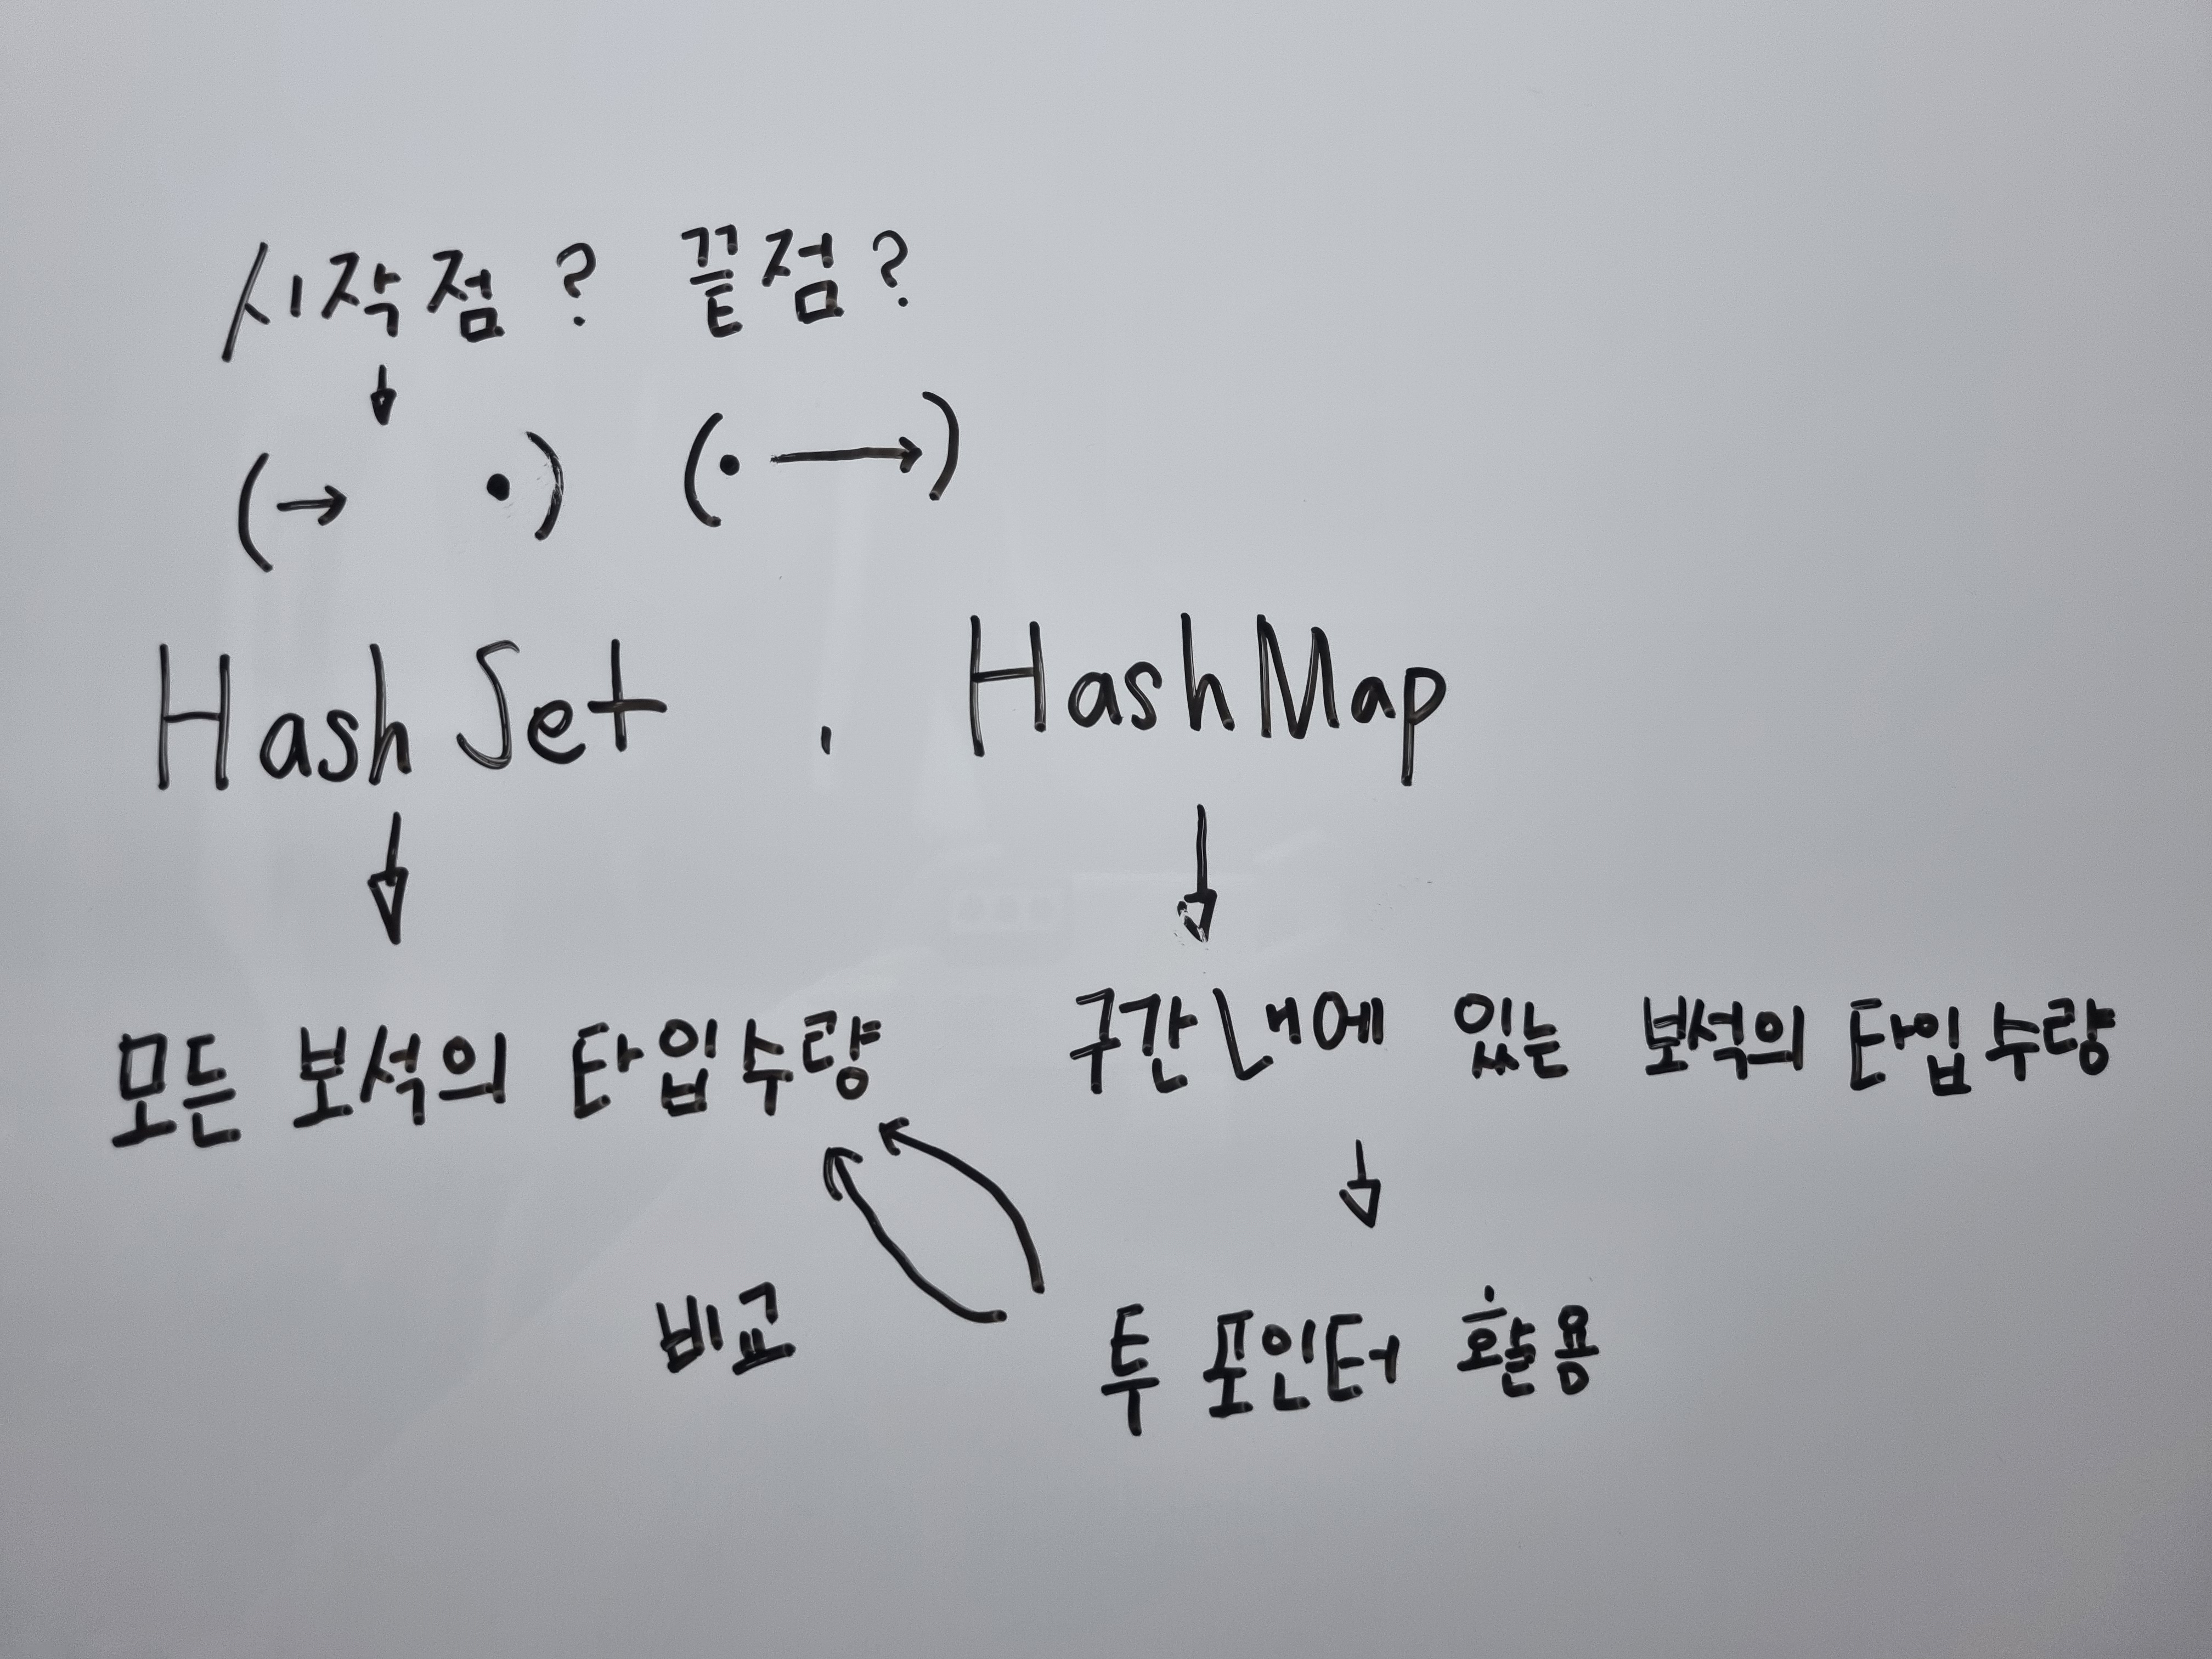 시작점? 끝점?
(→ •) (• →)
HashSet , HashMap
모든 보석의 타입수량 구간내에 있는 보석의 타입수량
비교 투 포인터 활용